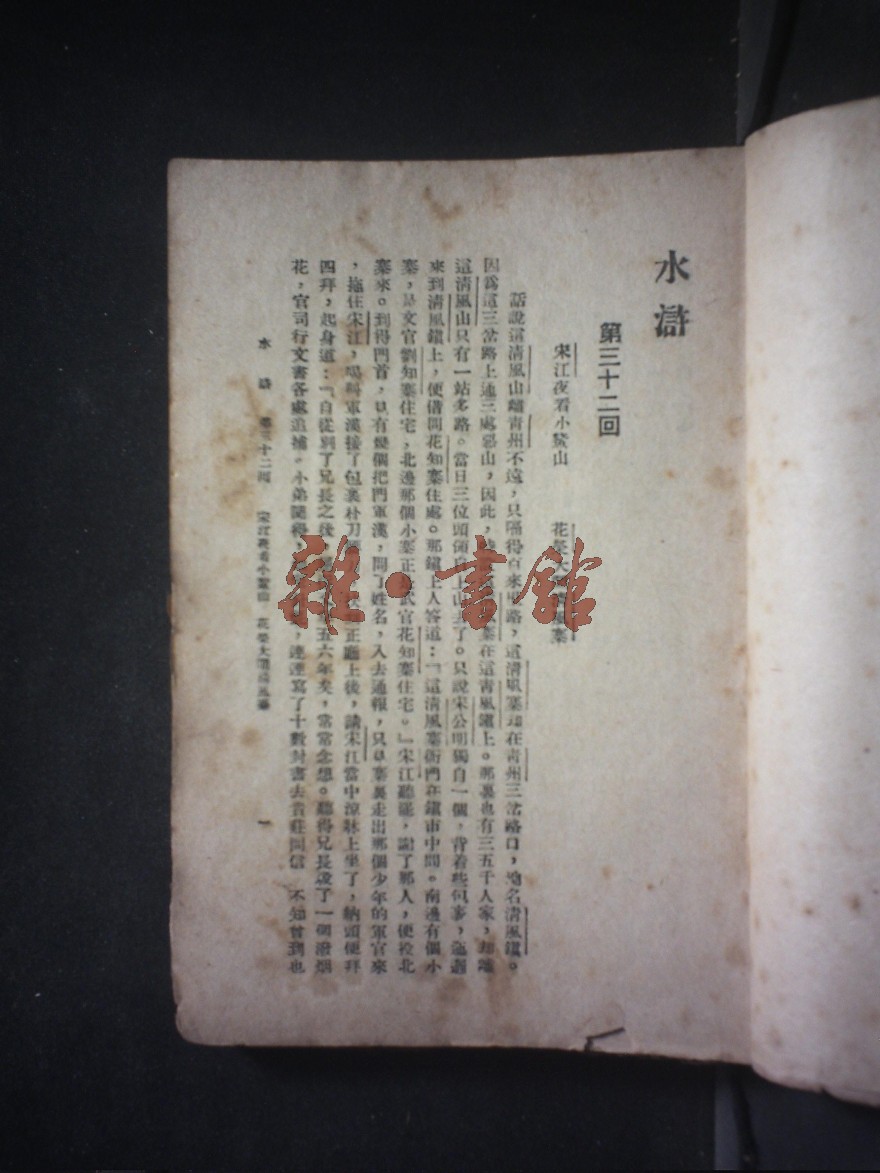 水滸
第三十二回
宋江夜看小鰲山 花榮大寨
話說這清風山離青州不遠，只隔得百來里路，這清風寨却在青州三岔路口，地名清風鎮。
因爲這三岔路上通三處惡山，因此，寨在這青風鎮上。那裏也有三五千人家，却離
這清風山只有一站多路。當日三位頭領自上山去了。只說宋公明獨自一個，背着些包裹，迤邐
來到清風鎮上，便借問花知寨住處。那鎮上人答道：「這清風寨衙門在鎮市中間。南邊有個小
寨，是文官劉知寨住宅，北邊那個小寨正武官花知寨住宅。」宋江聽罷，謝了那人，便投北
寨來。到得門首，見有幾個把門軍漢，問了姓名，入去通報，只見寨裏走出那個少年的軍官來
，拖住宋江，喝叫軍漢接了包裹朴刀正廳上後，請宋江當中涼牀上坐了，納頭便拜
四拜，起身道：「自從別了兄長之後，五六年矣，常常念想。聽得兄長殺了一個潑烟
花，官司行文書各處追捕。小弟聞得，連連寫了十數封書去貴莊問信 不知曾到也
水滸 第三十二回 宋江夜看小鰲山 花榮大鬧清風寨 一
雜·書館